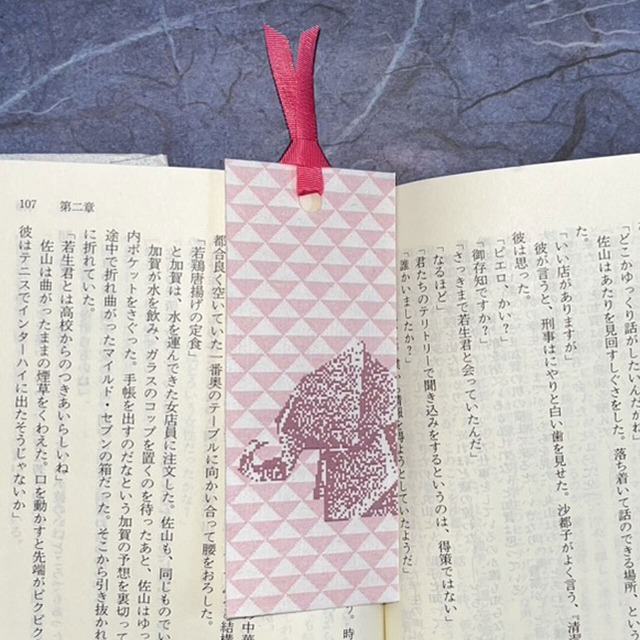 「どこかゆっくり話がしたいんだけれ
佐山はあたりを見回すしぐさをした。落ち着いて話のできる場所、とい
た。
「いい店がありますが」
彼が言うと、刑事はにやりと白い歯を見せた。沙都子がよく言う、清潔
彼は思った。
「ピエロ、かい?」
「御存知ですか?」
「さっきまで若生君と会っていたんだ」
「なるほど」
「君たちのテリトリーで聞き込みをするというのは、得策ではない」
「誰かいましたか?」
ようとしていたようだ
107 第二章
時
の中華
結構
都合良く空いていた一番奥のテーブルに向かい合って腰をおろした。
「若鶏唐揚げの定食」
と加賀は、水を運んできた女店員に注文した。佐山も、同じものでい
「加賀が水を飲み、ガラスのコップを置くのを待ったあと、佐山はゆっ
内ポケットをさぐった。手帳を出すのだなという加賀の予想を裏切って
途中で折れ曲がったマイルド・セブンの箱だった。そこから引き抜かれ
に折れていた。
「若生君とは高校からのつきあいらしいね」
佐山は曲がったままの煙草をくわえた。口を動かすと先端がピクピク
彼はテニスでインターハイに出たそうじゃないか」